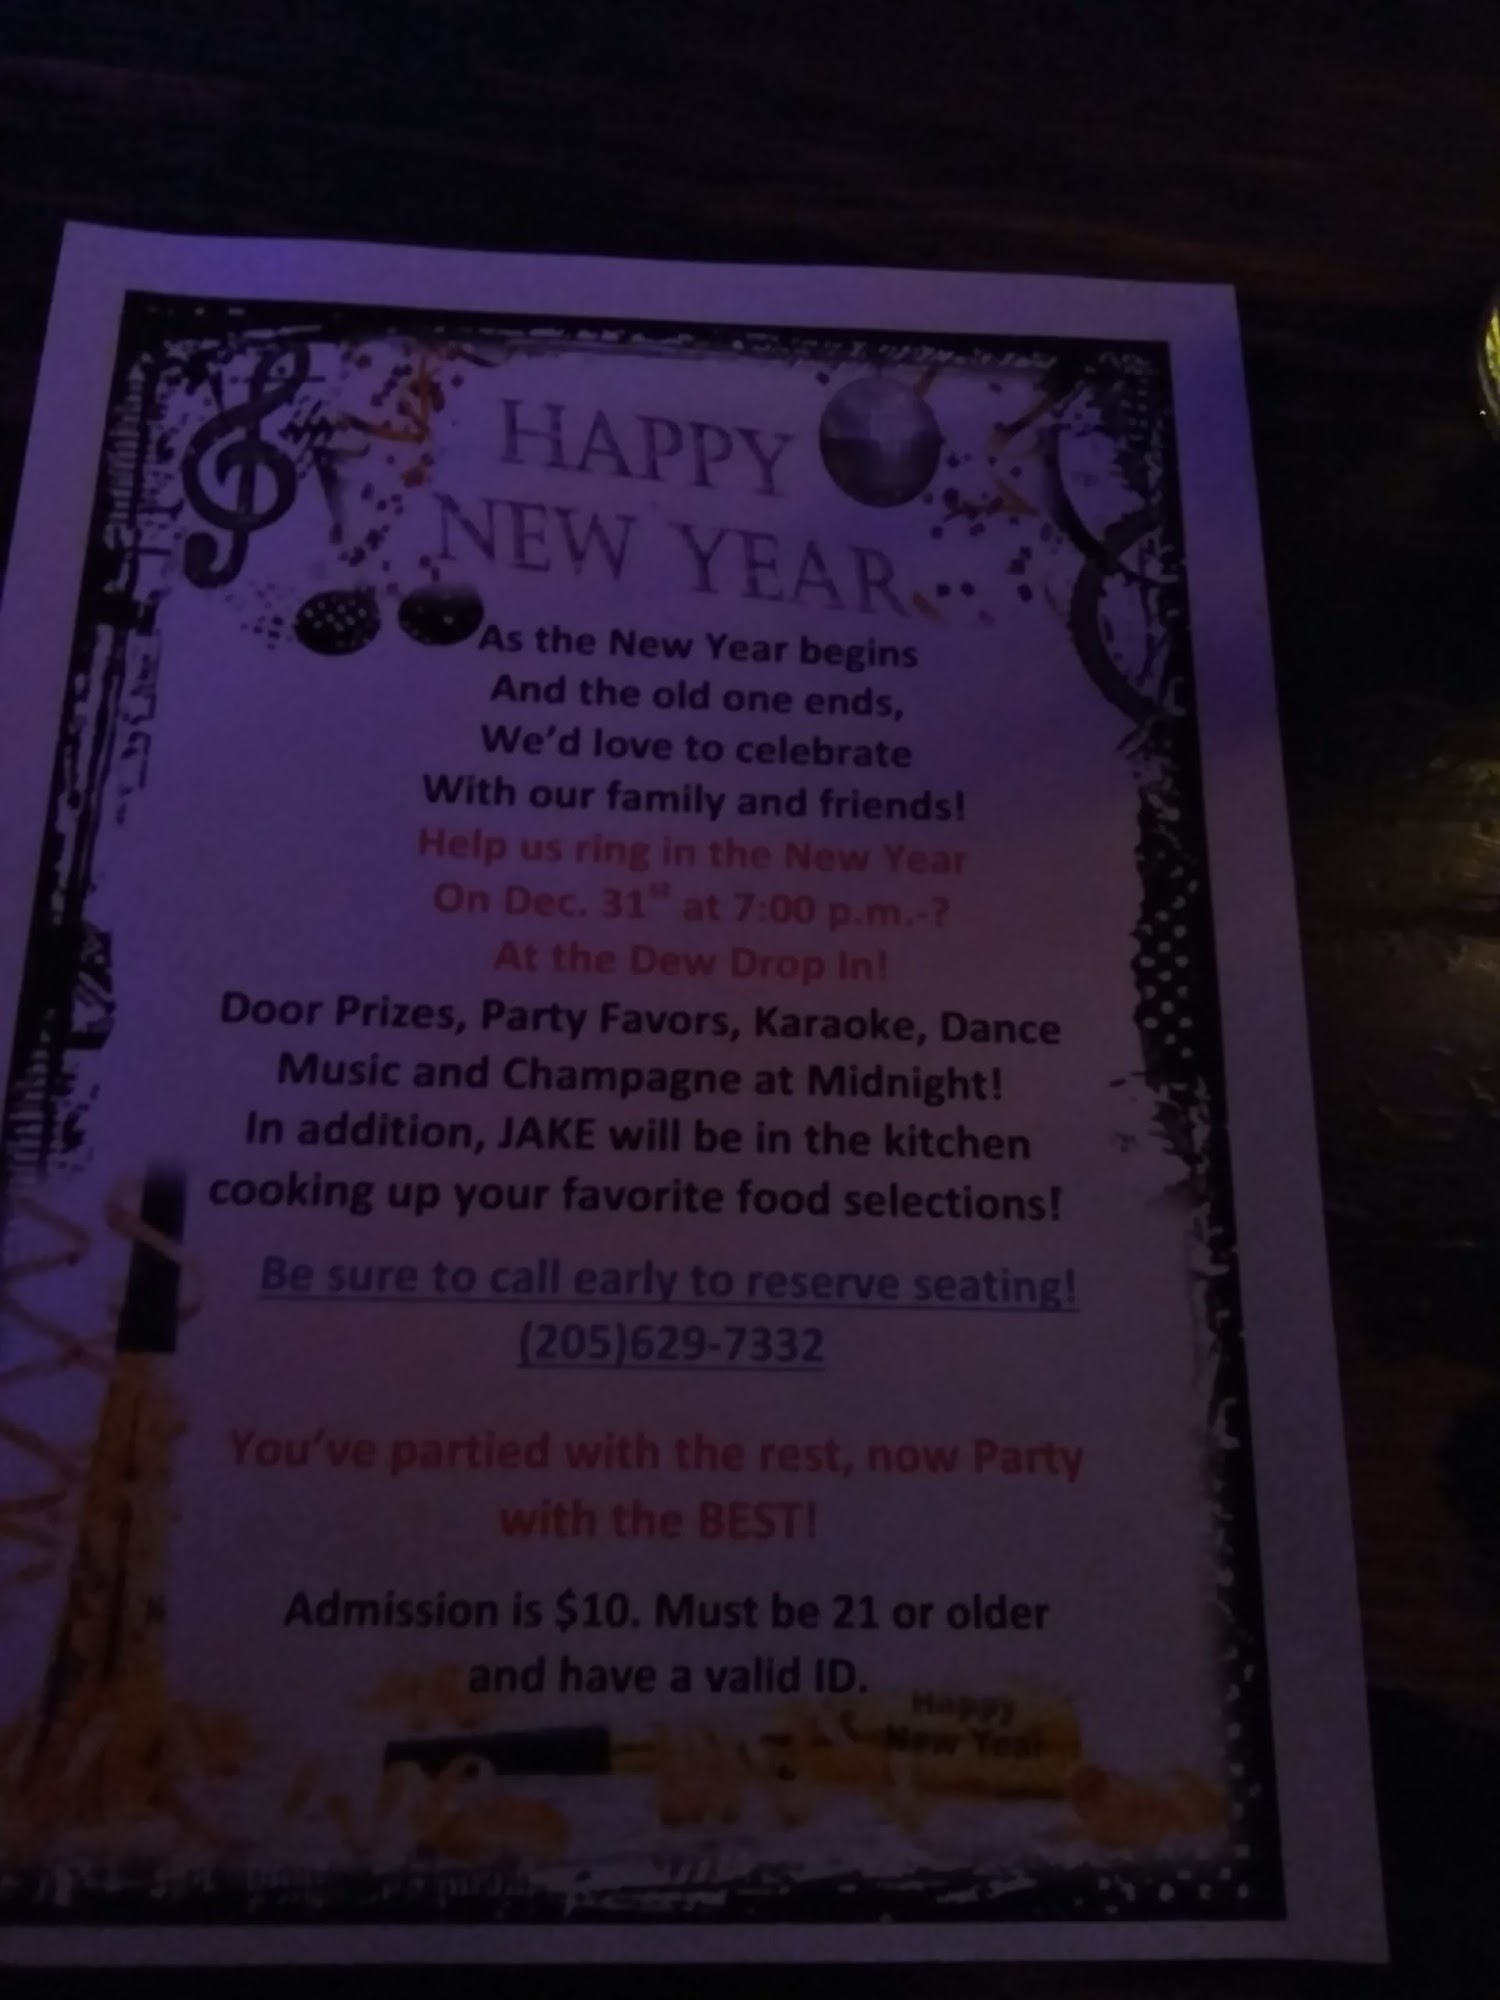 HAPPY
NEW YEAR
As the New Year begins
And the old one ends,
We'd love to celebrate
With our family and friends!
Help us ring in the New Year
On Dec. 31st at 7:00 p.m.-?
At the Dew Drop In!
Door Prizes, Party Favors, Karaoke, Dance
Music and Champagne at Midnight!
In addition, JAKE will be in the kitchen
cooking up your favorite food selections!
Be sure to call early to reserve seating!
(205)629-7332
You've partied with the rest, now Party
with the BEST!
Admission is $10. Must be 21 or older
and have a valid ID.
Happy
New Year